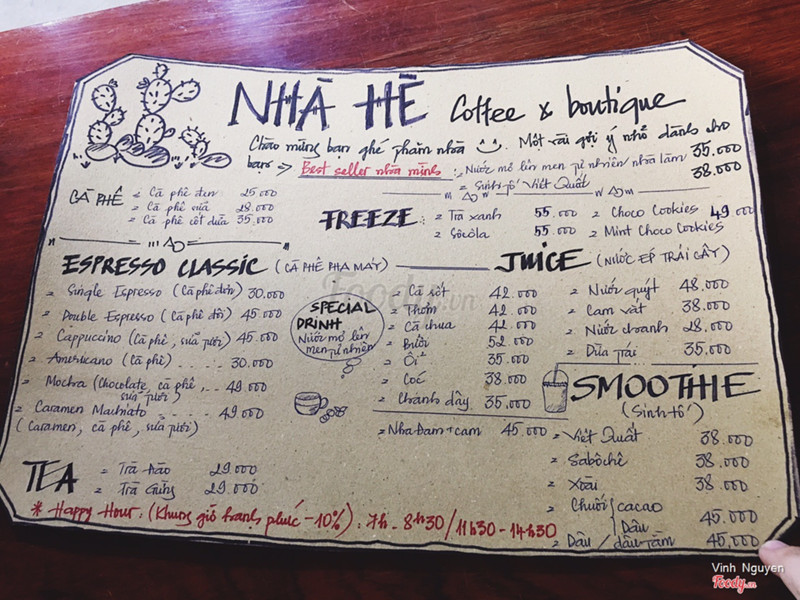 NHÀ HÈ Coffee & boutique
Chào mừng bạn ghé thăm nhà. Một vài gợi ý nhỏ dành cho
bạn → Best seller nhà mình : - Nước mơ lên men tự nhiên nhà làm 35.000
= Sinh tố Việt Quất 38.000
CÀ PHÊ = Cà phê đen 25.000
= Cà phê sữa 28.000
= Cà phê cốt dừa 35.000
FREEZE : = Trà xanh 55.000
= Sôcôla 55.000
= Choco Cookies 49.000
= Mint Choco Cookies
ESPRESSO CLASSIC (CÀ PHÊ PHA MÁY)
= Single Espresso (Cà phê đơn) 30.000
= Double Espresso (Cà phê đôi) 45.000
= Cappuccino (Cà phê, sữa tươi) 45.000
= Americano (Cà phê) .... 30.000
= Mocha (Chocolate, cà phê, .. 49.000
sữa tươi)
= Caramen Machiato ..... 49.000
(Caramen, cà phê, sữa tươi)
SPECIAL
DRINH
Nước mơ lên
men tự nhiên
JUICE (NƯỚC ÉP TRÁI CÂY)
= Cà rốt 42.000
= Thơm 42.000
= Cà chua 42.000
= Bưởi 52.000
= Ổi 35.000
= Cóc 38.000
= Chanh dây 35.000
= Nha đam + cam 45.000
= Nước quýt 48.000
= Cam vắt 38.000
= Nước chanh 28.000
= Dừa trái 35.000
SMOOTHIE
(Sinh tố)
= Việt Quất 38.000
= Sabôchê 38.000
= Xoài 38.000
= Chuối { cacao
Dâu 45.000
= Dâu / dâu tằm 45.000
TEA = Trà đào 29.000
= Trà Gừng 29.000
* Happy Hour: (Khung giờ hạnh phúc -10%) : 7h - 8h30 / 11h30 - 14h30
Foody.vn
Vinh Nguyen
Foody.vn